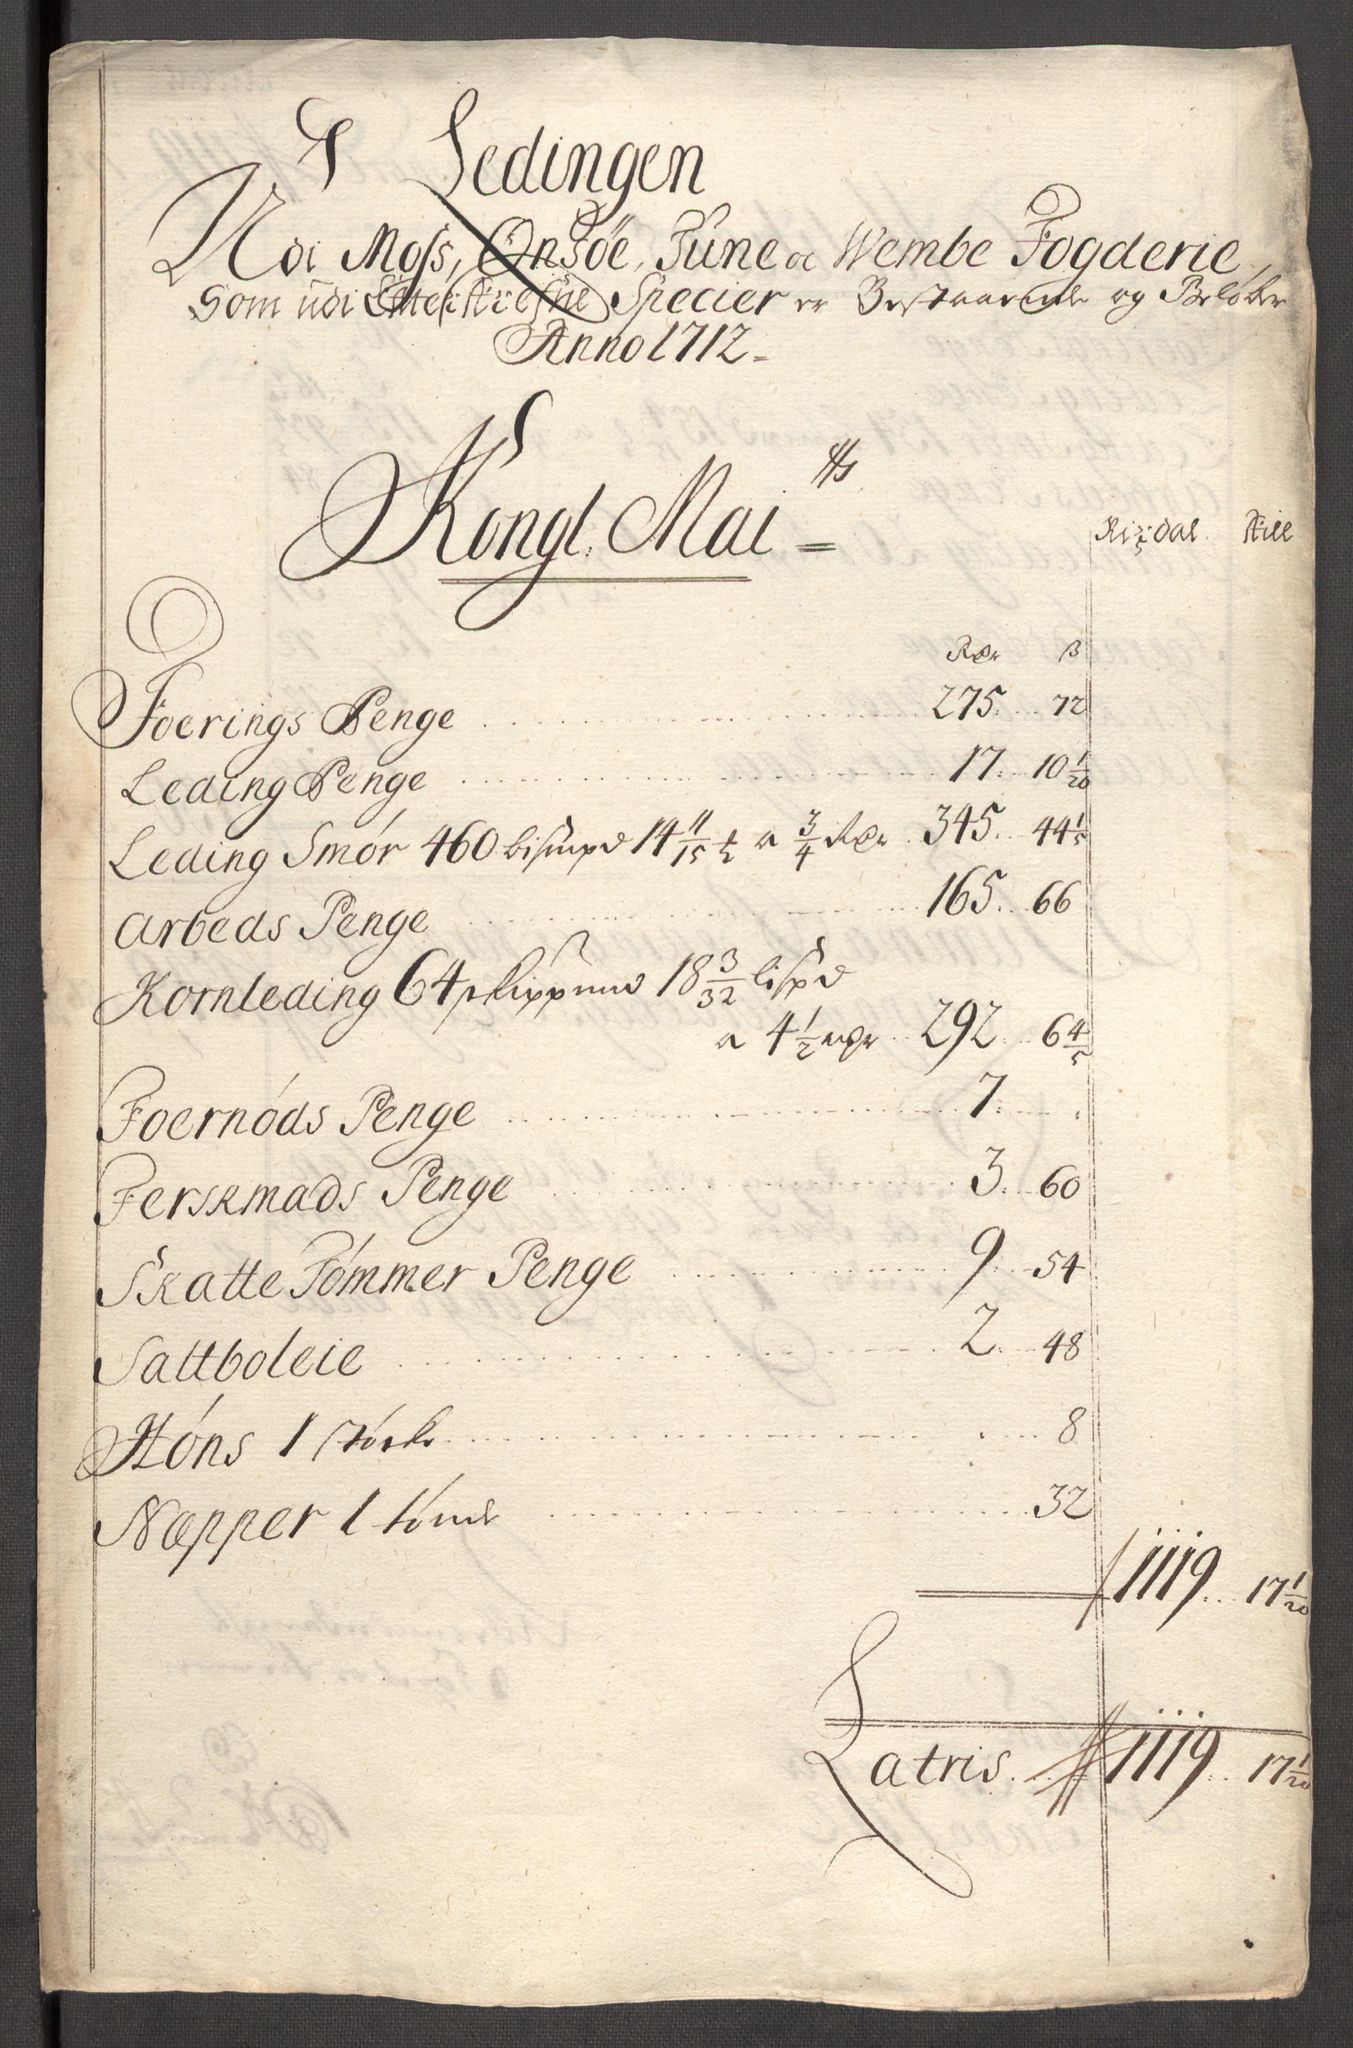 Ledingen
Udi Moss, Onsöe, Tune oc Wembe Fogderie,
Som udi Efterskrefne Specier er Bestaaende og Beløber
Anno 1712
Kongl. Mai tts
Rixdal. skill
Rdr ß
Foerings Penge 275. 72
Leding Penge 17. 10 1/20
Leding Smór 460 bismpd 14 11/15 ℔ a 3/4 Rdr 345. 44 1/5
Arbeds Penge 165. 66
Kornleding 64 skippund 18 3/32 lispd
a 4 1/2 rdr 292. 6 4/5
Foernóds Penge 7.
Ferskmads Penge 3. 60
Skatte Tómmer Penge 9. 54
Sattboleie 2. 48
Hóns 1 støcke 8
Næpper 1 tónde 32
1119. 17 1/20
Latris. 1119. 17 1/20